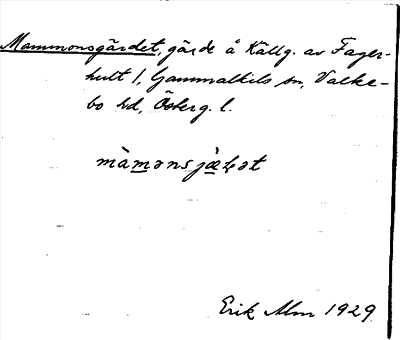 Mammonsgärdet, gärde å Källg. av Fager-
hult 1, Gammalkils sn, Valke-
bo hd, Österg. l.
màmɔnsjæ̀ɽət
Erik Alm 1929